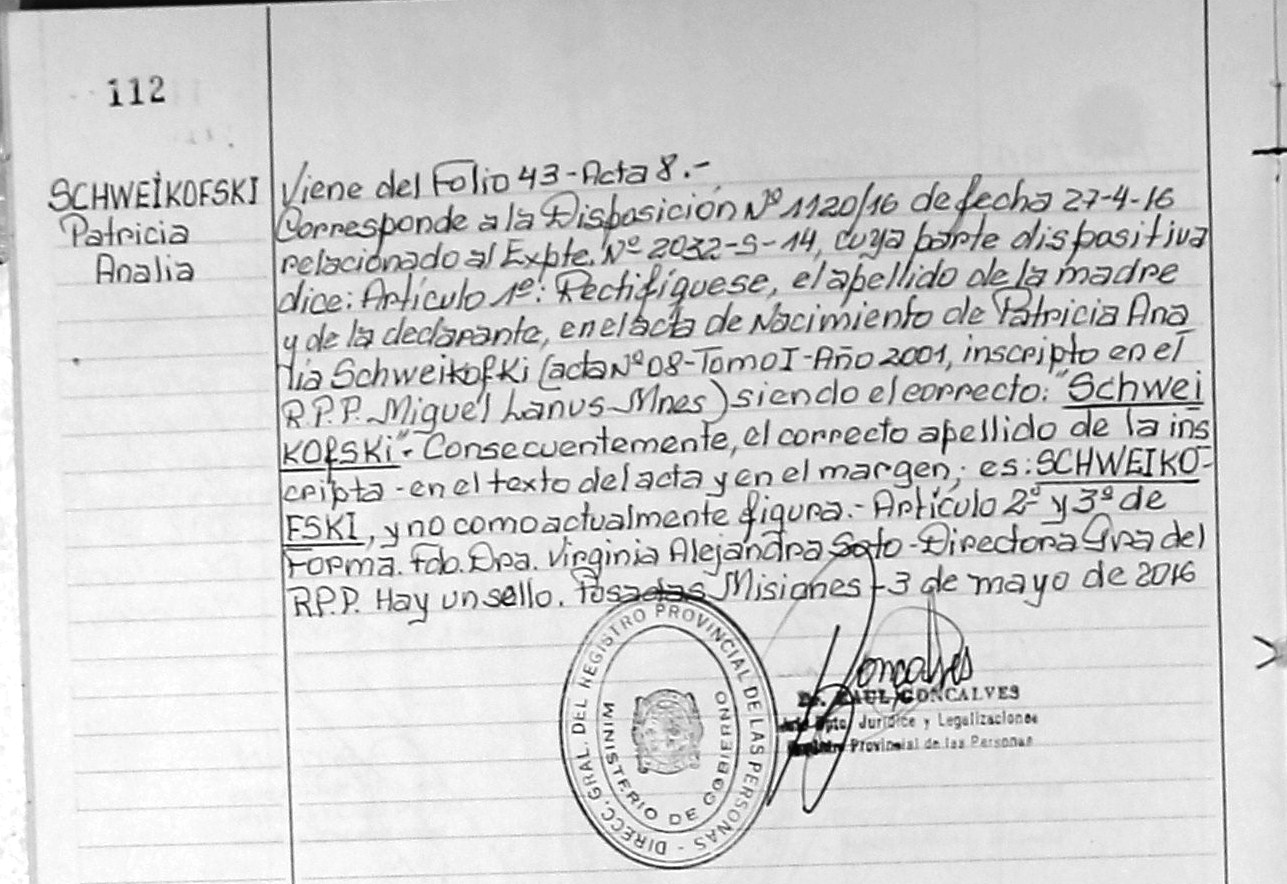 112
SCHWEIKOFSKI
Patricia
Analia
Viene del Folio 43 - Acta 8.-
Corresponde a la Disposición Nº 1120/16 de fecha 27-4-16
relacionado al Expte. Nº 2032-S-14, cuya parte dispositiva
dice: Artículo 1º: Rectifíquese, el apellido de la madre
y de la declarante, en el acta de Nacimiento de Patricia Ana
lia Schweikofki (acta Nº 08-Tomo I-Año 2001, inscripto en el
R.P.P. Miguel Lanus-Mnes) siendo el correcto: "Schwei
KOfSKi"- Consecuentemente, el correcto apellido de la ins
cripta - en el texto del acta y en el margen; es: SCHWEIKO-
FSKI, y no como actualmente figura.- Artículo 2º y 3º de
Forma. Fdo. Dra. Virginia Alejandra Soto - Directora Gra del
R.P.P. Hay un sello. Posadas Misiones - 3 de mayo de 2016
DIRECC. GRAL. DEL REGISTRO PROVINCIAL DE LAS PERSONAS -
MINISTERIO DE GOBIERNO
Goncalves
Dr. RAUL GONCALVES
Dpto. Juridico y Legalizaciones
Registro Provincial de las Personas